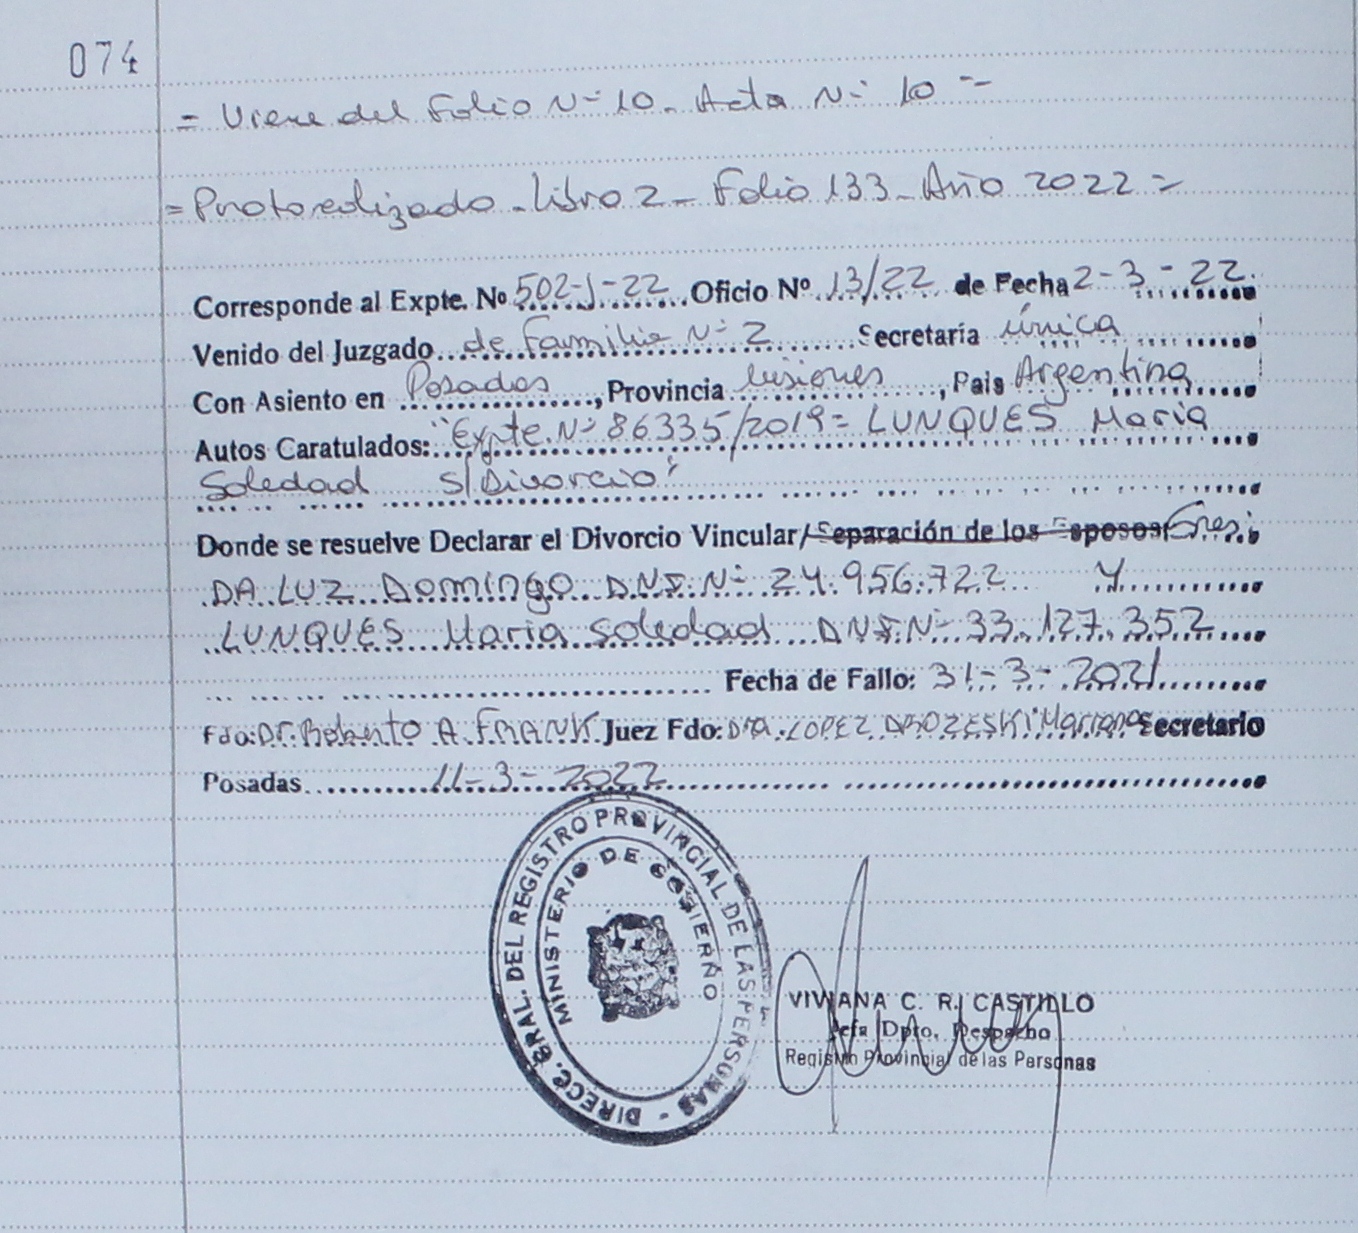 074
= Viene del Folio N- 10 - Acta N- 10 =
= Protocolizado - Libro 2 - Folio 133 - Año 2022 =
Corresponde al Expte. Nº 502-J-22 Oficio Nº 13/22 de Fecha 2-3-22.
Venido del Juzgado de Familia N- 2 Secretaría única
Con Asiento en Posadas, Provincia Misiones, Pais Argentina
Autos Caratulados: "Expte. N- 86335/2019= LUNQUES Maria
Soledad S/Divorcio"
Donde se resuelve Declarar el Divorcio Vincular/Separación de los Esposos: Sres.
DA LUZ Domingo D.N.I. N- 24.956.722 Y
LUNQUES Maria Soledad DNI N- 33.127.352
Fecha de Fallo: 31-3-2021
Fdo: Dr. Roberto A. FRANK Juez Fdo: Dra. LOPEZ Mariana Secretario
Posadas 11-3-2022
DIRECC. GRAL. DEL REGISTRO PROVINCIAL DE LAS PERSONAS -
MINISTERIO DE GOBIERNO
VIVIANA C. R. CASTILLO
Jefa Dpto. Despacho
Registro Provincial de las Personas